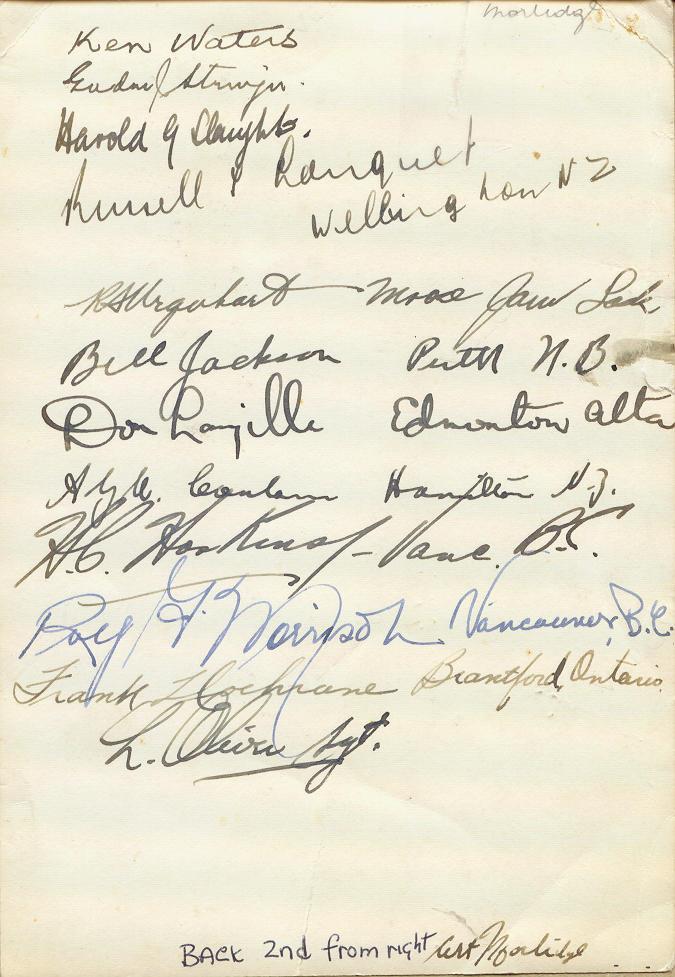 Morlidge
Ken Waters
Harold G Slaught
Russell
Wellington NZ
R S Urquhart Moose Jaw Sask.
Bill Jackson Perth N.B.
Don Edmonton Alta
Hamilton
H.C. Hoskins - Vanc. B.C.
Roy G. Morrison Vancouver, B.C.
Frank L Cochrane Brantford, Ontario
L. Sgt.
BACK 2nd from right Art Morlidge